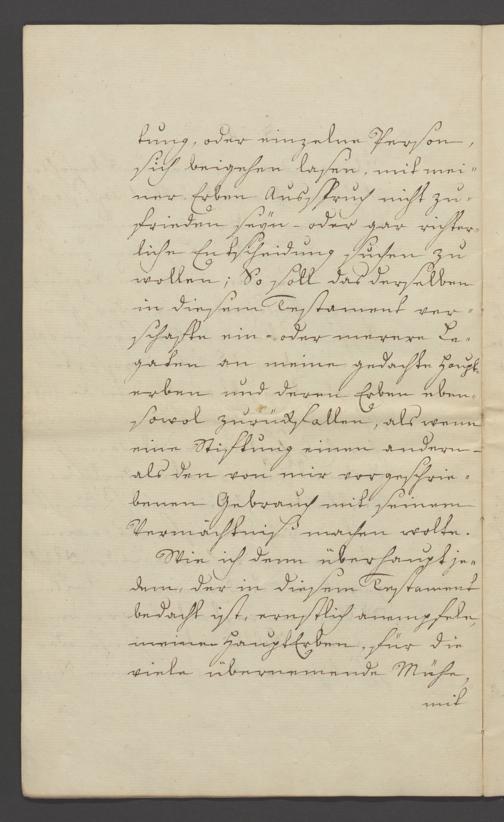 tung, oder einzelne Person,
sich beigehen lasen, mit mei-
ner Erben Ausspruch nicht zu-
frieden seÿn - oder gar richter-
liche Entscheidung suchen zu
wollen; So soll das derselben
in diesem Testament ver-
schafte ein - oder merere Le-
gaten an meine gedachte Haupt-
erben und deren Erben eben-
sowol zurückfallen, als wenn
eine Stiftung einen andern -
als den von mir vorgeschrie-
benen Gebrauch mit seinem
Vermächtniß machen wolte.
Wie ich denn überhaupt je-
dem, der in diesem Testament
bedacht ist, ernstlich anempfele,
meinen HauptErben, für die
viele übernemende Mühe,
mit